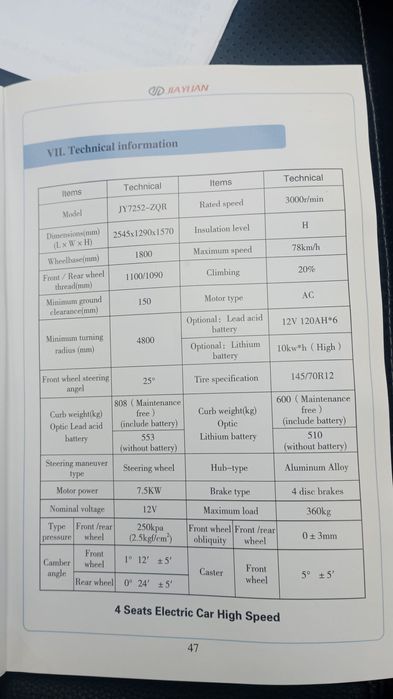 JIAYUAN
VII. Technical information
Items Technical Items Technical
Model JY7252-ZQR Rated speed 3000r/min
Dimensions(mm) (L x W x H) 2545x1290x1570 Insulation level H
Wheelbase(mm) 1800 Maximum speed 78km/h
Front / Rear wheel thread(mm) 1100/1090 Climbing 20%
Minimum ground clearance(mm) 150 Motor type AC
Minimum turning radius (mm) 4800 Optional: Lead acid battery 12V 120AH*6
Optional: Lithium battery 10kw*h ( High )
Front wheel steering angel 25° Tire specification 145/70R12
Curb weight(kg) Optic Lead acid battery 808 ( Maintenance free ) (include battery) Curb weight(kg) Optic Lithium battery 600 ( Maintenance free ) (include battery)
553 (without battery) 510 (without battery)
Steering maneuver type Steering wheel Hub-type Aluminum Alloy
Motor power 7.5KW Brake type 4 disc brakes
Nominal voltage 12V Maximum load 360kg
Type pressure Front /rear wheel 250kpa (2.5kgf/cm²) Front wheel obliquity Front /rear wheel 0 ± 3mm
Camber angle Front wheel 1° 12′ ± 5′ Caster Front wheel 5° ± 5′
Rear wheel 0° 24′ ± 5′
4 Seats Electric Car High Speed
47